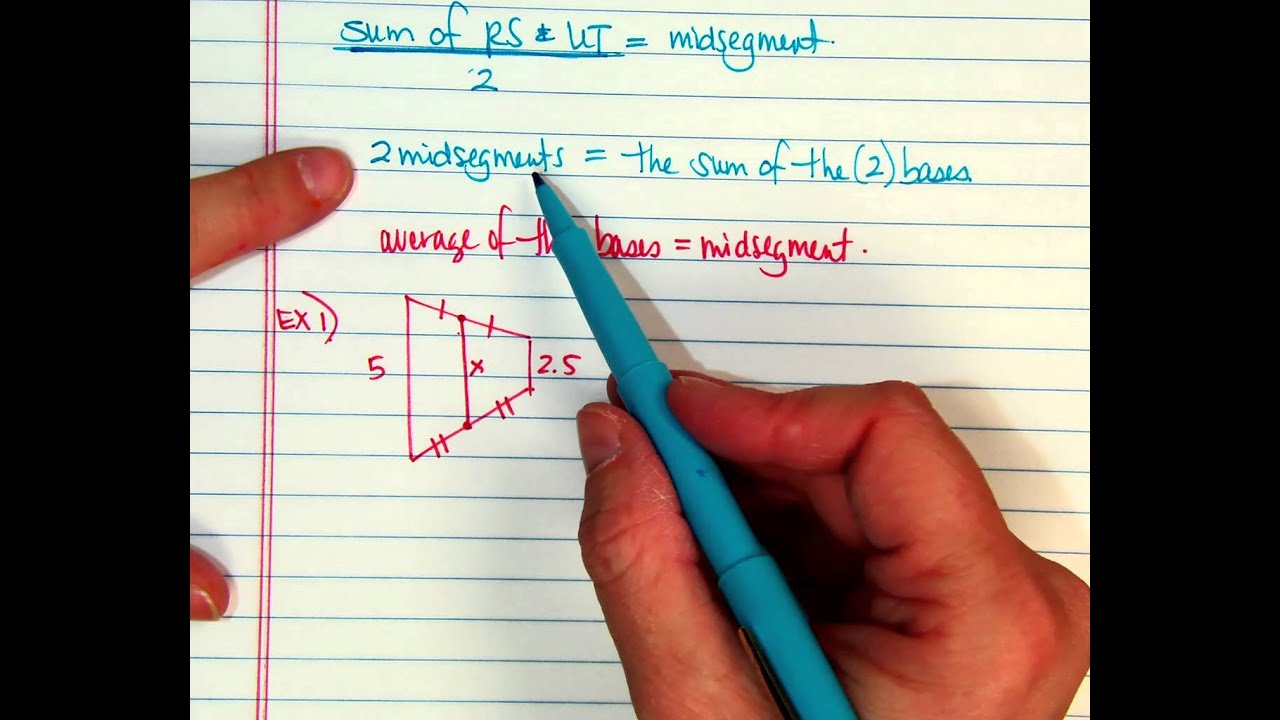 sum of RS & UT = midsegment.
2
2 midsegments = the sum of the (2) bases.
average of the bases = midsegment.
EX 1)
5 x 2.5